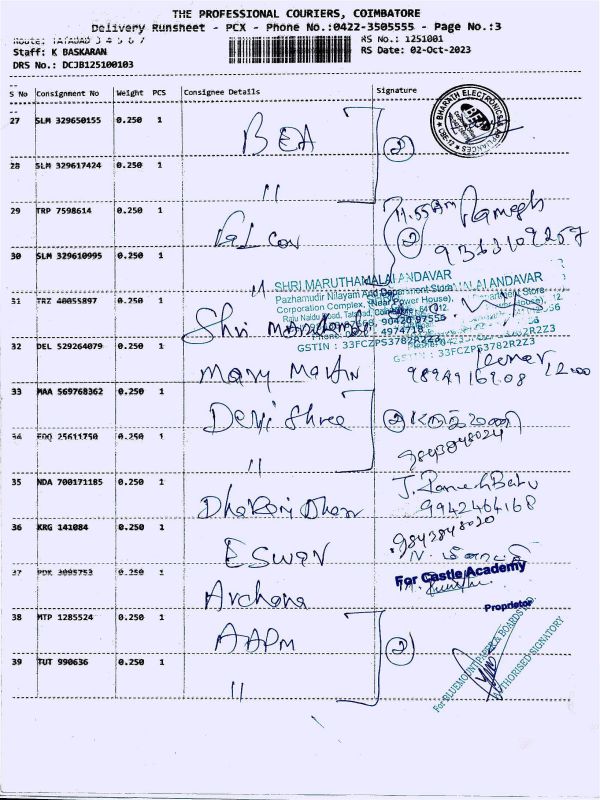 THE PROFESSIONAL COURIERS, COIMBATORE
Delivery Runsheet - PCX - Phone No.:0422-3505555 - Page No.:3
Route: TATABAD 3 4 5 6 7
RS No.: 1251001
Staff: K BASKARAN
RS Date: 02-Oct-2023
DRS No.: DCJB125100103
S No Consignment No Weight PCS Consignee Details Signature
27 SLM 329650155 0.250 1 BEA 2
BHARATH ELECTRONICS & APPLIANCES
BEA
28 SLM 329617424 0.250 1 "
29 TRP 7598614 0.250 1 Falcon 11.55 AM Ramesh
2 9363109257
30 SLM 329610995 0.250 1 "
SHRI MARUTHAMALAI ANDAVAR
Pazhamudir Nilayam And Department Store
Corporation Complex, (Near Power House),
Raju Naidu Road, Tatabad, Coimbatore - 641 012.
90420 97555
GSTIN : 33FCZPS3782R2Z3
MALAI ANDAVAR
Department Store
GSTIN : 33FCZPS3782R2Z3
31 TRZ 40055897 0.250 1 Shri
32 DEL 529264079 0.250 1 Mary Martin
12.00
33 MAA 569768362 0.250 1 Devi Shree 2
9843848024
34 EDQ 25611750 0.250 1 "
35 NDA 700171185 0.250 1 J. Ramesh Babu
9942464168
36 KRG 141084 0.250 1 ESWAR
9843848020
37 PDK 3095753 0.250 1 Archana
For Castle Academy
Proprietor
38 MTP 1285524 0.250 1 AAPM 2
39 TUT 990636 0.250 1 "
For BLUEMOUNT PAPER & BOARDS
AUTHORISED SIGNATORY